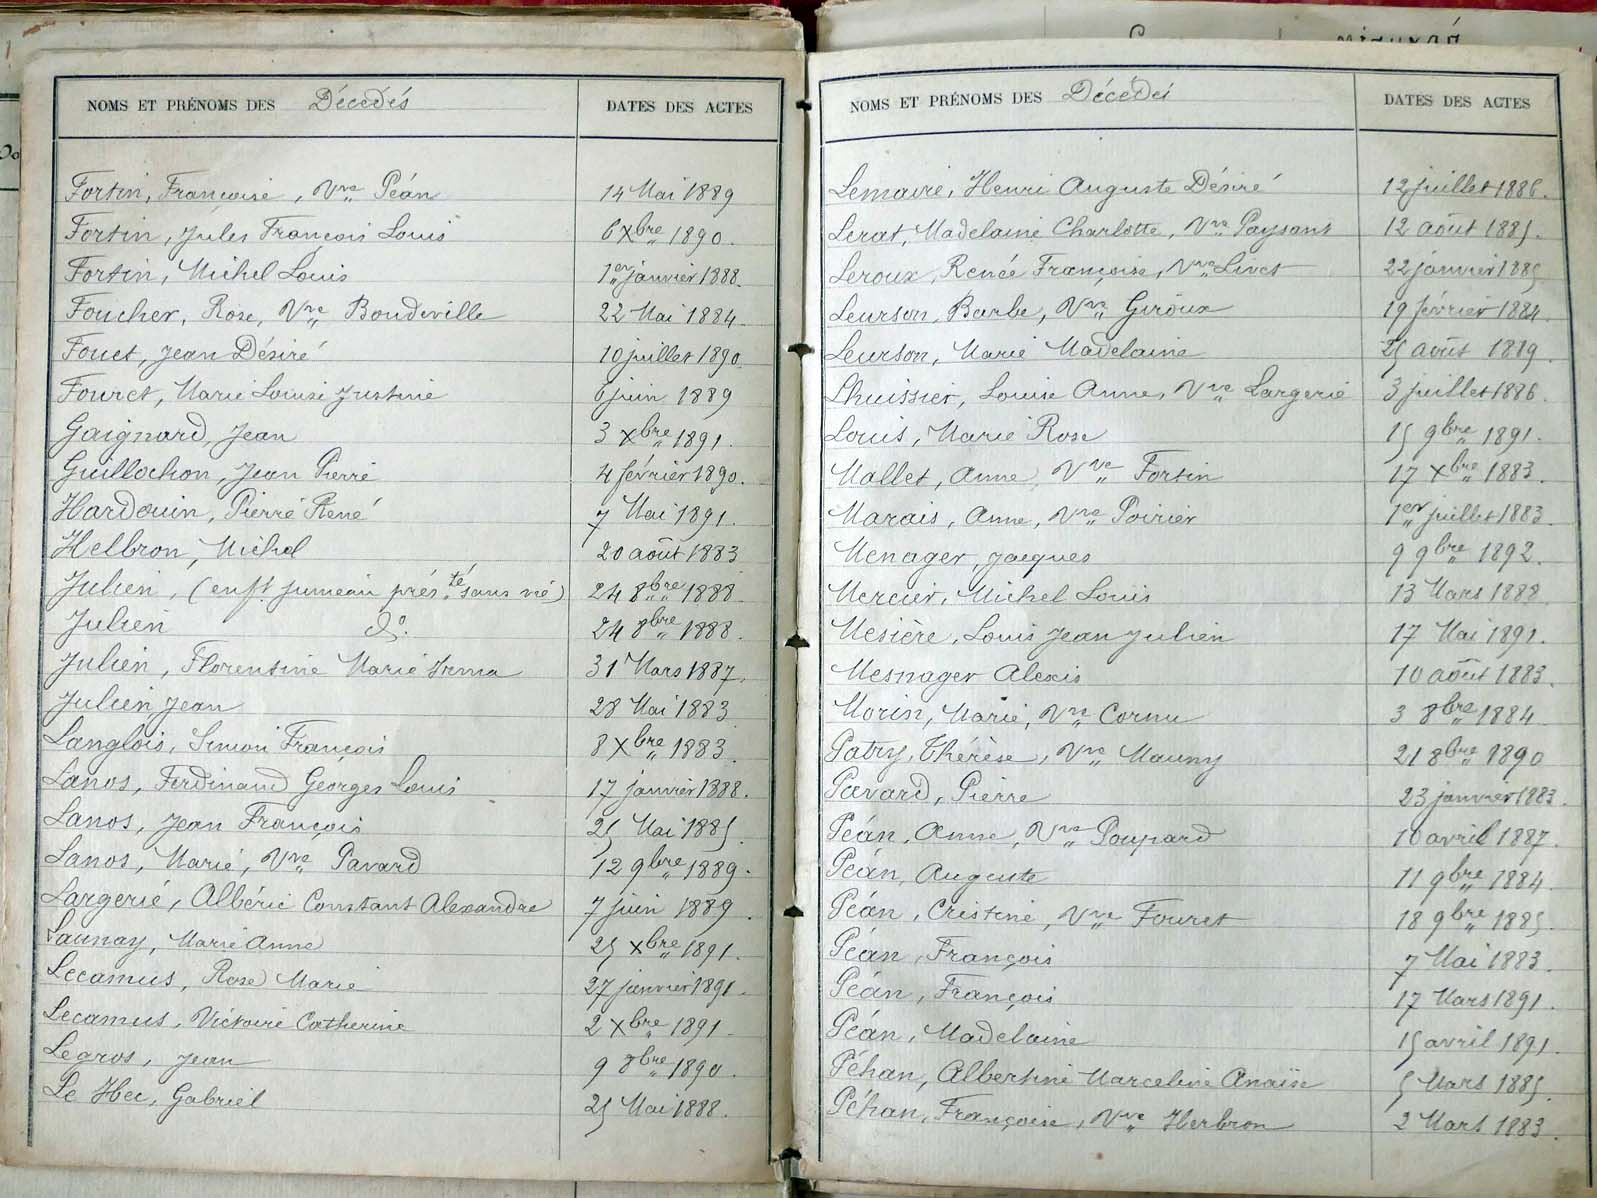 NOMS ET PRÉNOMS DES Décédés DATES DES ACTES
Fortin, Françoise, Vve Péan 14 Mai 1889
Fortin, Jules François Louis 6 Xbre 1890.
Fortin, Michel Louis 1er janvier 1888.
Foucher, Rose, Vve Boudeville 22 Mai 1884
Fouet, Jean Désiré 10 juillet 1890
Fouret, Marie Louise Justine 6 juin 1889
Gaignard, Jean 3 Xbre 1891.
Guillochon, Jean Pierre 4 février 1890.
Hardouin, Pierre René 7 Mai 1891.
Helbron, Michel 20 août 1883
Julien, (enft jumeau prés.té sans vie) 24 8bre 1888
Julien do. 24 8bre 1888.
Julien, Florentine Marie Irma 31 Mars 1887.
Julien Jean 28 Mai 1883
Langlois, Simon François 8 Xbre 1883.
Lanos, Ferdinand Georges Louis 17 janvier 1888.
Lanos, Jean François 25 Mai 1885.
Lanos, Marie, Vve Pavard 12 9bre 1889.
Largerie, Albéric Constant Alexandre 7 juin 1889.
Launay, Marie Anne 25 Xbre 1891.
Lecamus, Rose Marie 27 janvier 1891.
Lecamus, Victoire Catherine 2 Xbre 1891
Legros, Jean 9 8bre 1890.
Le Hec, Gabriel 25 Mai 1888.
NOMS ET PRÉNOMS DES Décédés DATES DES ACTES
Lemaire, Henri Auguste Désiré 12 juillet 1886.
Lerat, Madelaine Charlotte, Vve Paysant 12 août 1885.
Leroux, Renée Françoise, Vve Livet 22 janvier 1885
Leurson, Barbe, Vve Giroux 19 février 1884.
Leurson, Marie Madelaine 25 août 1889.
Lhuissier, Louise Anne, Vve Largerie 3 juillet 1886.
Louis, Marie Rose 15 9bre 1891.
Mallet, Anne, Vve Fortin 17 Xbre 1883.
Marais, Anne, Vve Poirier 1er juillet 1883.
Menager, Jacques 9 9bre 1892.
Mercier, Michel Louis 13 Mars 1888
Mesière, Louis Jean Julien 17 Mai 1891.
Mesnager Alexis 10 août 1883.
Morin, Marie, Vve Cornu 3 8bre 1884
Patry, Thérèse, Vve Mauny 21 8bre 1890
Pavard, Pierre 23 janvier 1883.
Péan, Anne, Vve Poupard 10 avril 1887.
Péan, Auguste 11 9bre 1884
Péan, Cristine, Vve Fouret 18 9bre 1885.
Péan, François 7 Mai 1883.
Péan, François 17 Mars 1891.
Péan, Madelaine 15 avril 1891.
Péhan, Albertine Marceline Anaïse 5 Mars 1885.
Péhan, Françoise, Vve Herbron 2 Mars 1883.